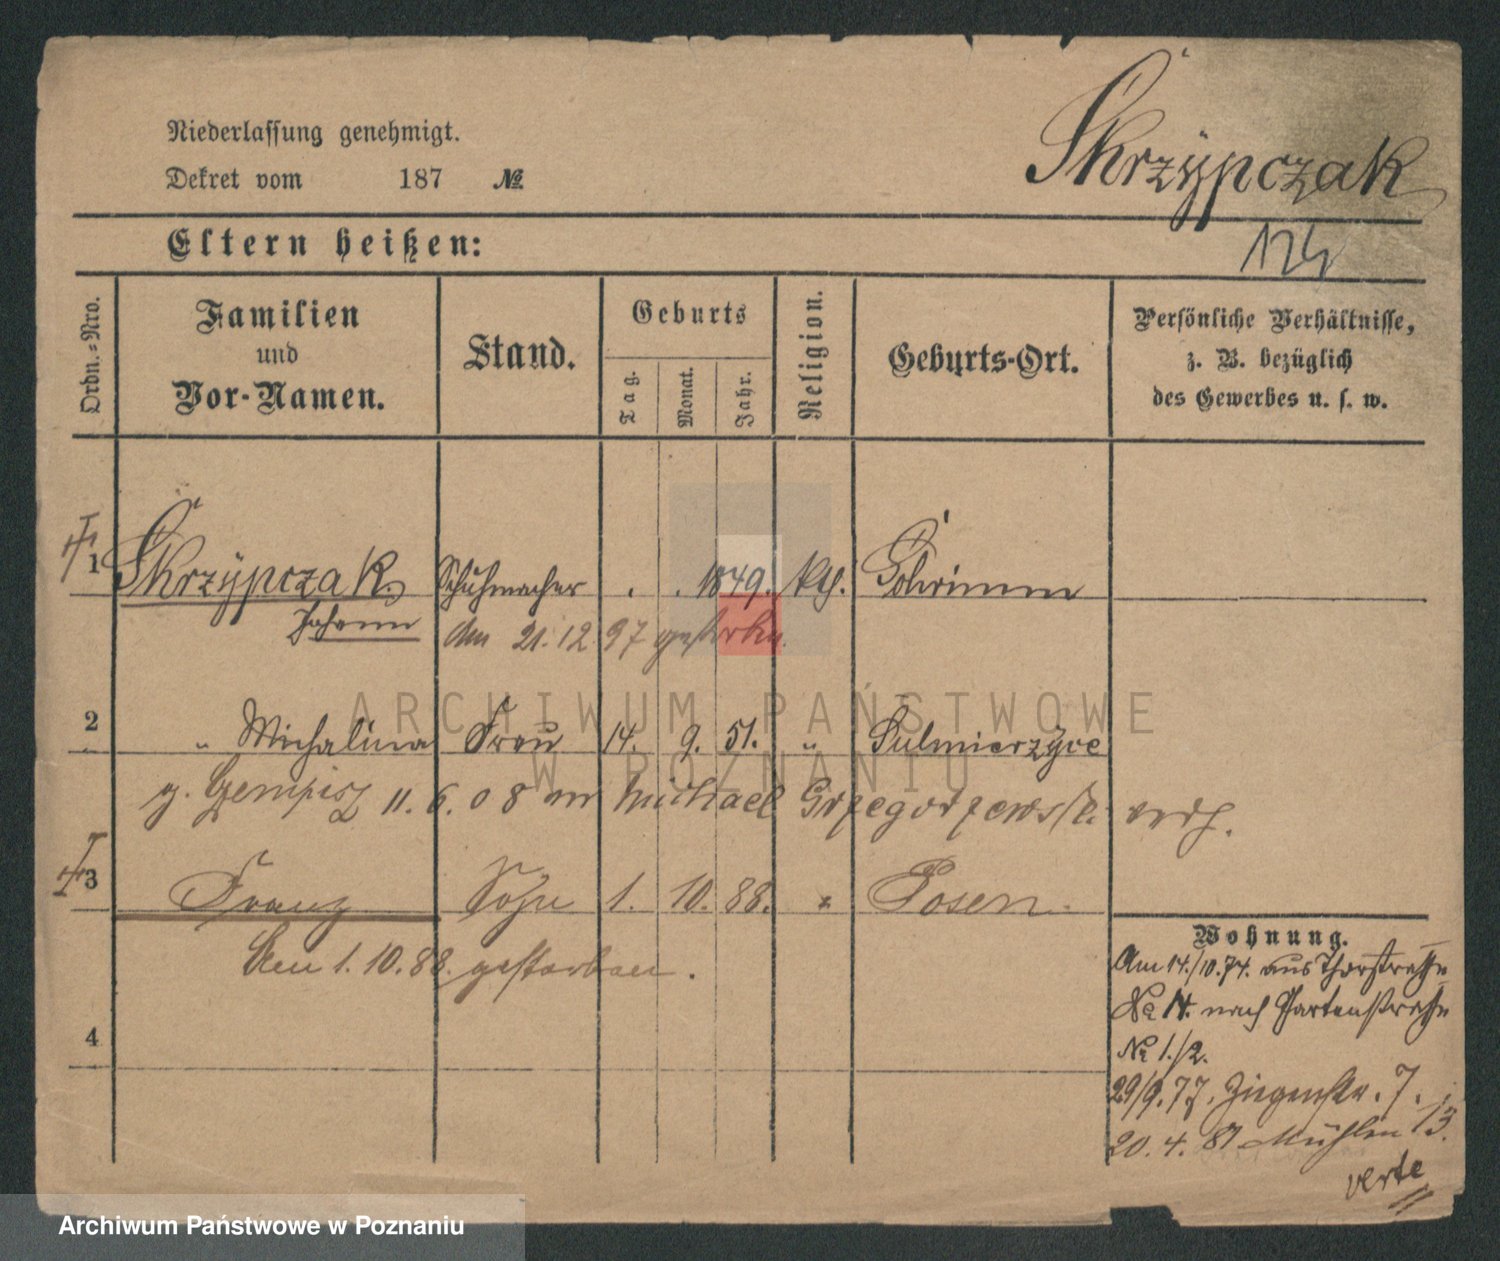 Skrzypczak
Niederlassung genehmigt.
Dekret vom 187 №
Eltern heißen:
Ordn.-Nro.
Familien
und
Vor-Namen.
Stand.
Geburts
Tag.
Monat.
Jahr.
Religion.
Geburts-Ort.
Persönliche Verhältnisse,
z. B. bezüglich
des Gewerbes u. s. w.
1 Skrzypczak Schuhmacher . . 1849. kth.
Johann den 21.12 97 gestorben.
2 " Michalina Frau 14. 9. 51. " Sulmierzyce
g. 11. 6. 08 m Michael Grzegorzewski verh.
3 Franz Sohn 1. 10. 88. " Posen.
Den 1.10.88. gestorben.
4
Wohnung.
Am 14./10.74. aus Thorstraße
№ 14. nach Gartenstraße
№ 1./2.
29/9.77. Ziegenstr. 7.
20.4.81 Mühlen 13.
verte
ARCHIWUM PAŃSTWOWE
W POZNANIU
Archiwum Państwowe w Poznaniu